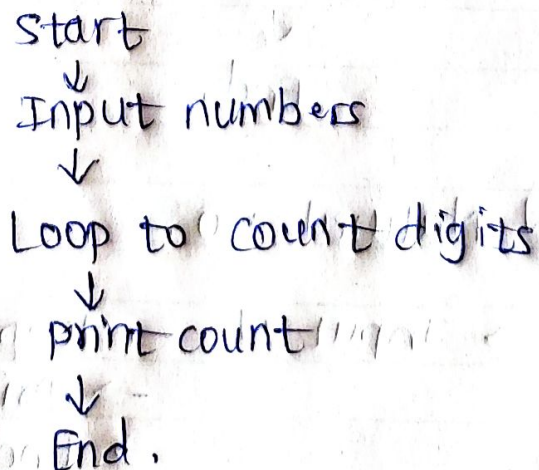 Start
↓
Input numbers
↓
Loop to count digits
↓
print count
↓
End.